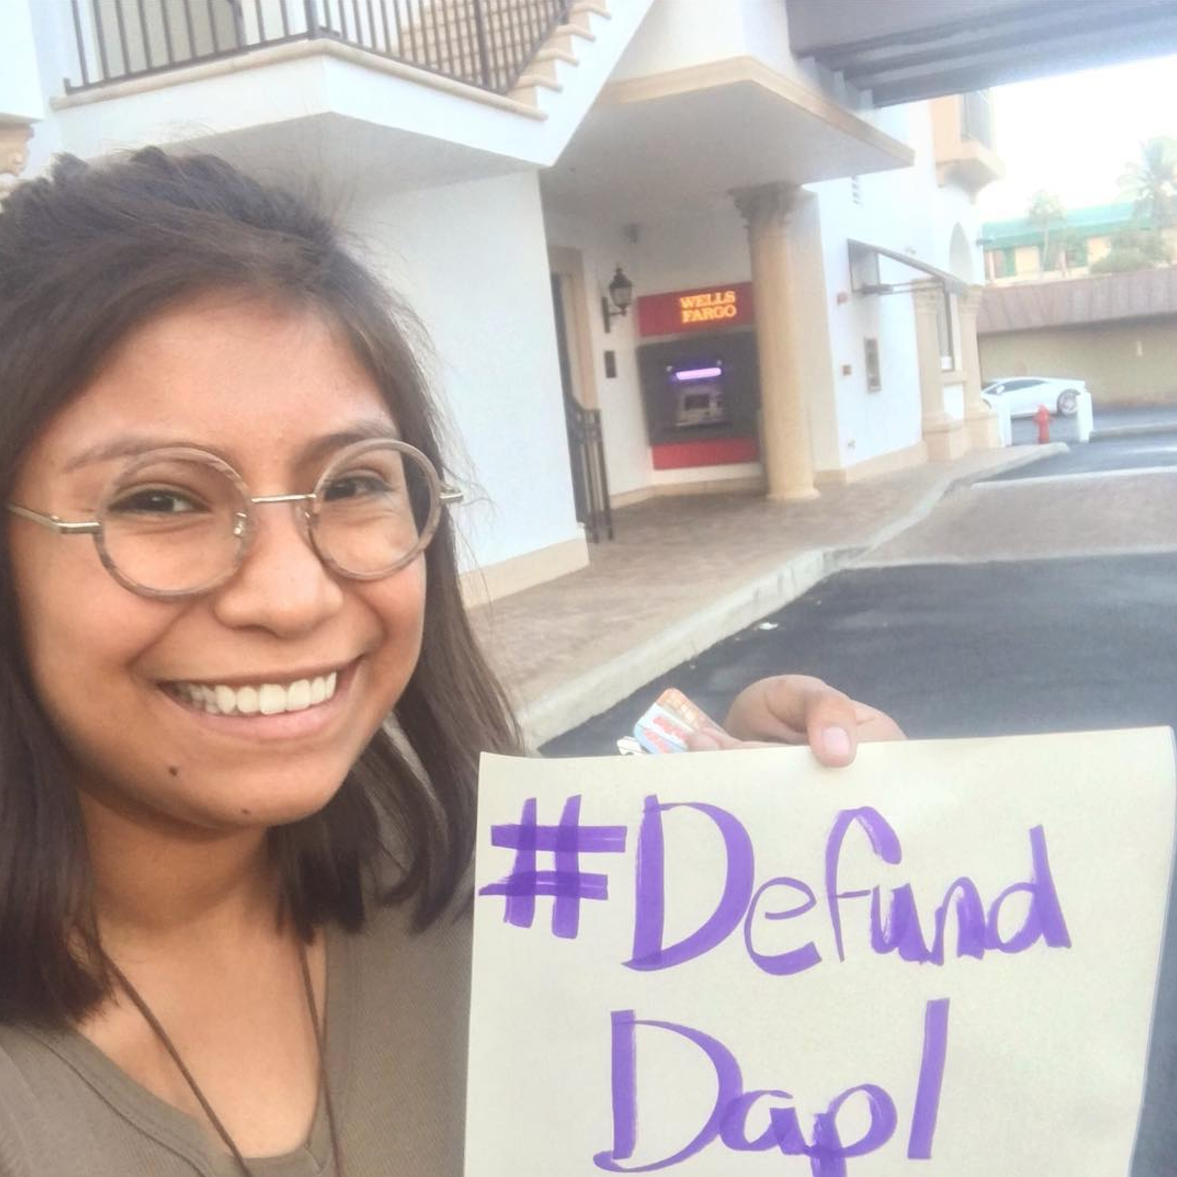 WELLS
FARGO
#Defund
Dapl